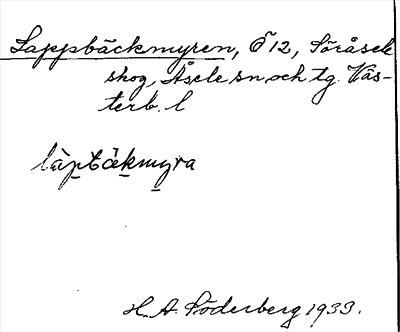 Lappbäckmyren, Ö 12, Söråsele
skog, Åsele sn och tg. Väs-
terb. l
làptäkmyra
H. A. Söderberg 1933.